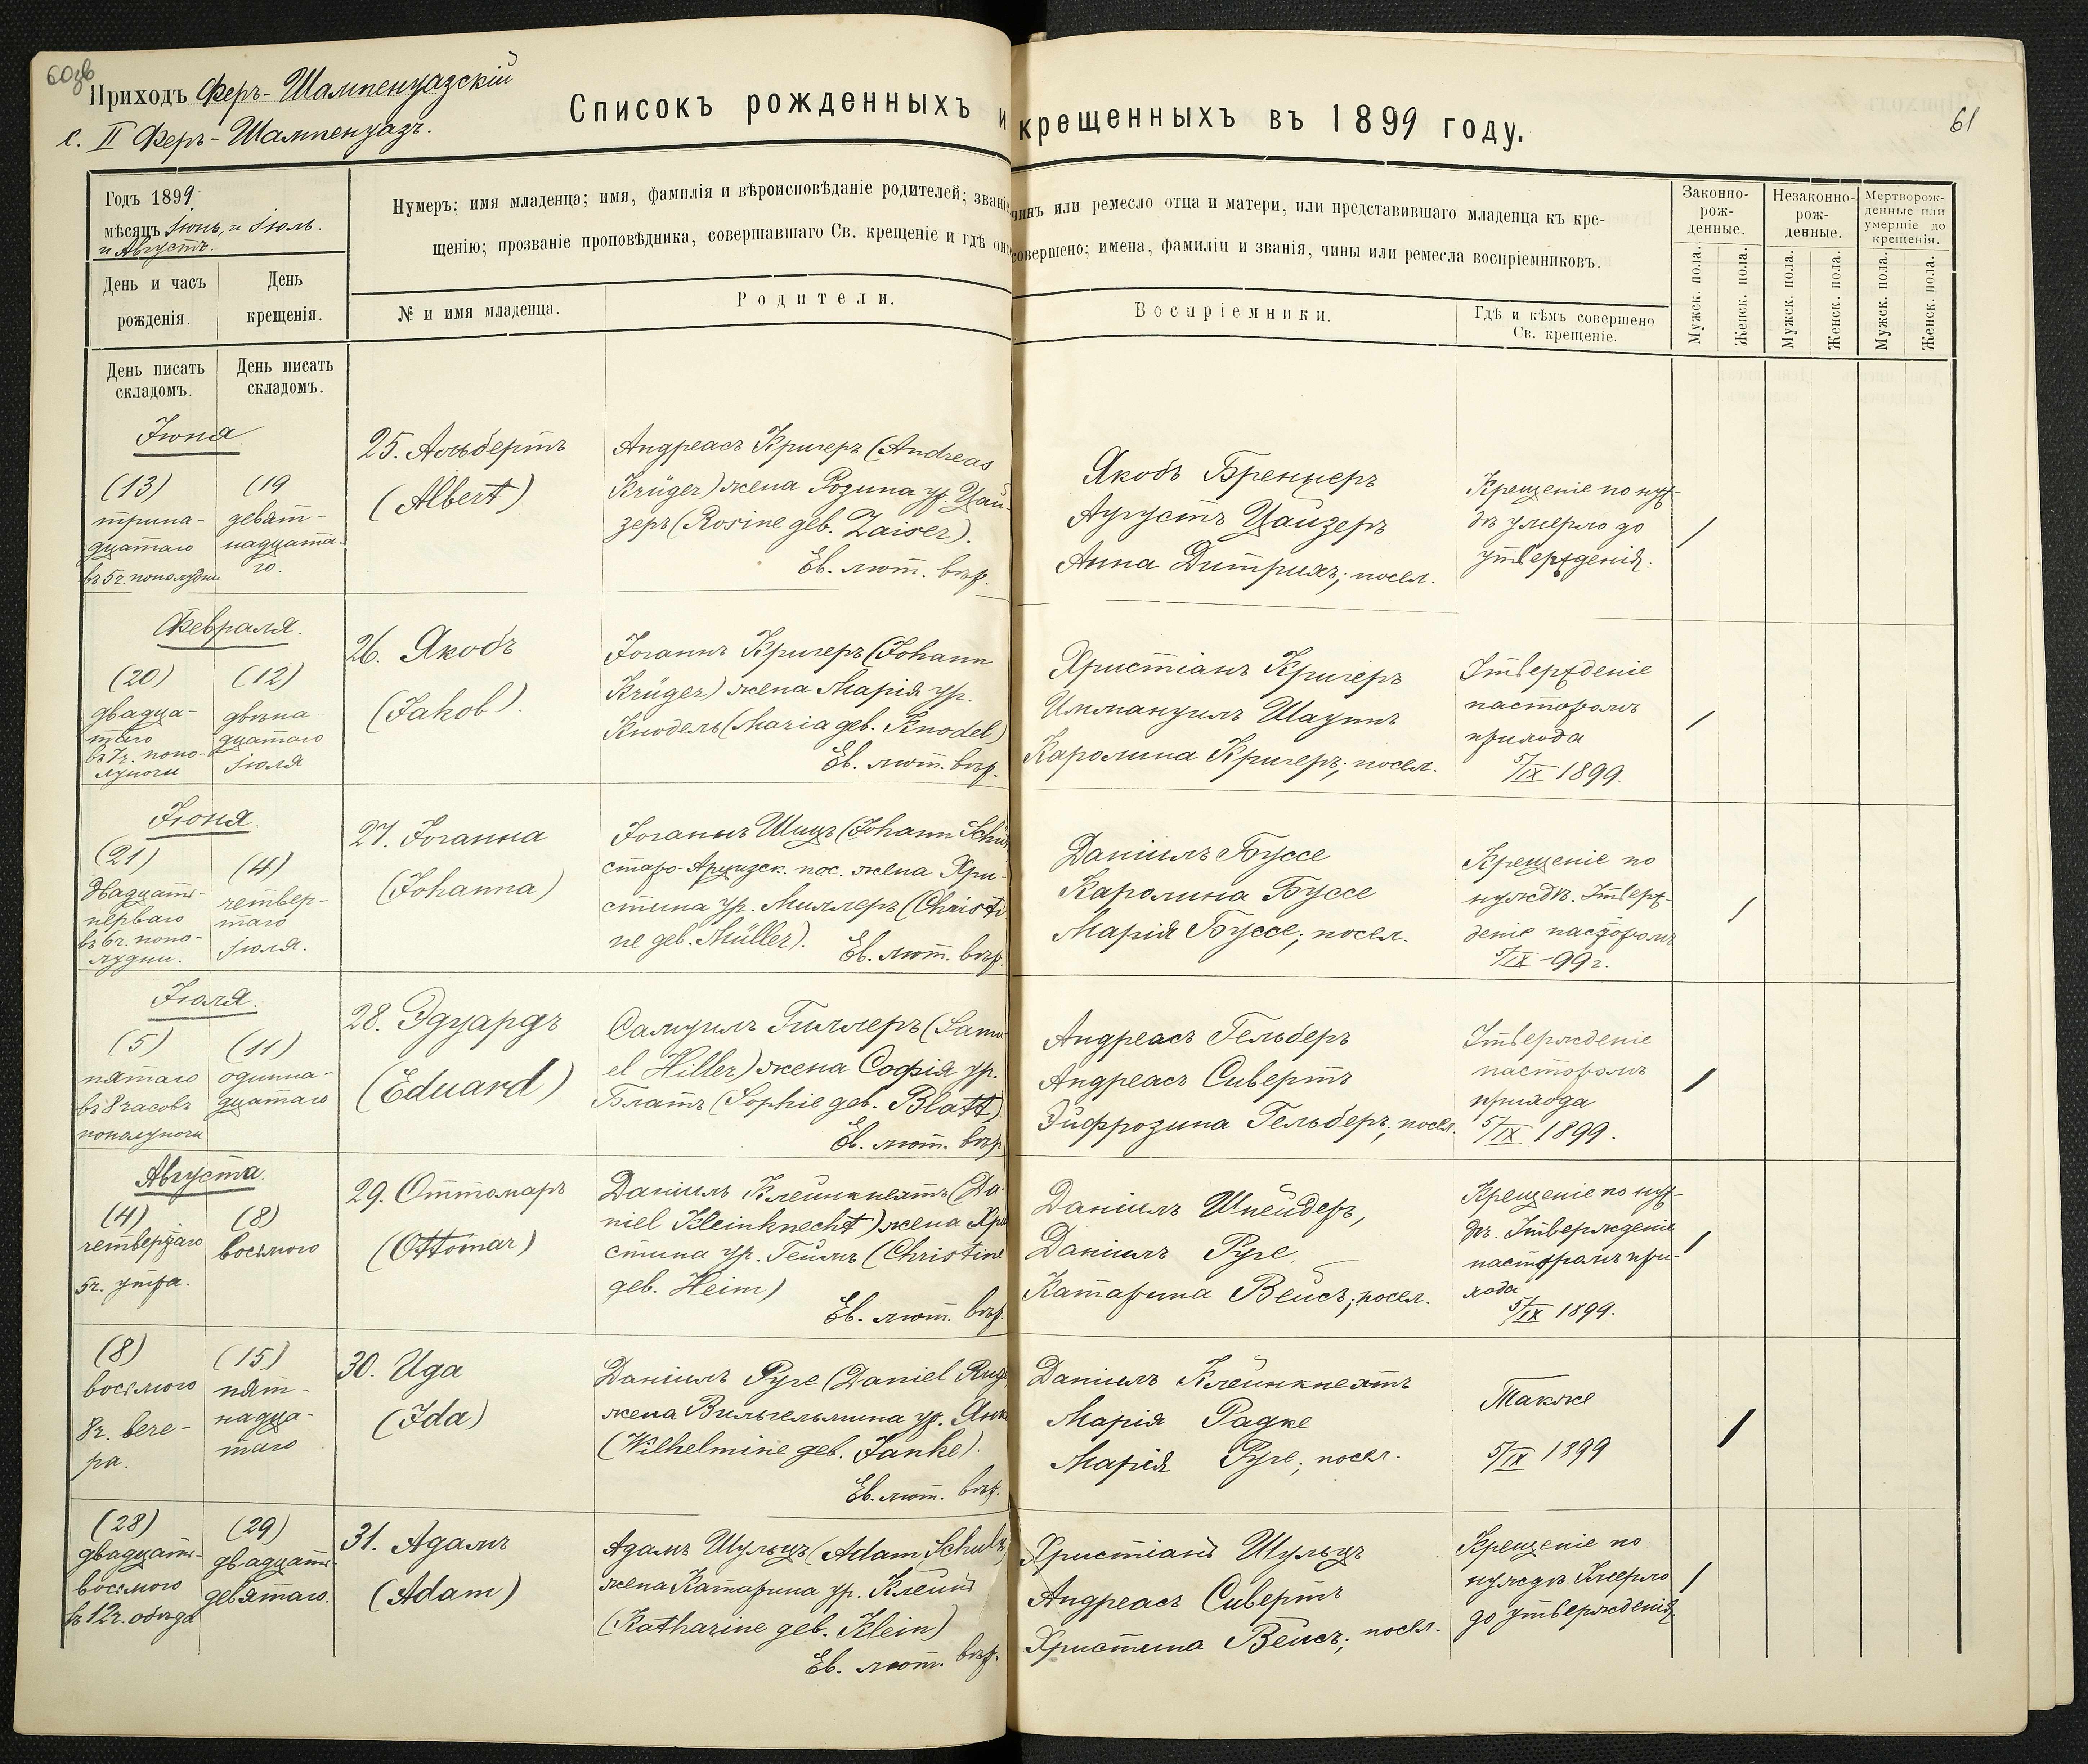 60об
Приходъ Феръ-Шампенуазскій
с. II Феръ-Шампенуазъ.
Списокъ рожденныхъ и крещенныхъ въ 1899 году.
61
Годъ 1899
мѣсяцъ Іюнь, и Іюль.
и Августъ.
День и часъ рожденія.
День крещенія.
Нумеръ; имя младенца; имя, фамилія и вѣроисповѣданіе родителей; званіе чинъ или ремесло отца и матери, или представившаго младенца къ кре-
щенію; прозваніе проповѣдника, совершавшаго Св. крещеніе и гдѣ оно совершено; имена, фамиліи и званія, чины или ремесла воспріемниковъ.
№ и имя младенца.
Родители.
Воспріемники.
Гдѣ и кѣмъ совершено
Св. крещеніе.
Законно-
рож-
денные.
Незаконно-
рож-
денные.
Мертворож-
денные или
умершіе до
крещенія.
Мужск. пола.
Женск. пола.
Мужск. пола.
Женск. пола.
Мужск. пола.
Женск. пола.
День писать
складомъ.
День писать
складомъ.
Іюня
(13)
трина-
дцатаго
въ 5ч. пополудни
(19
девят-
надцата-
го.
25. Альбертъ
(Albert)
Андреасъ Кригеръ (Andreas
Krüger) жена Розина ур. Цай-
зеръ (Rosine geb. Zaiser).
Ев. лют. вѣр.
Якобъ Бреннеръ
Аугустъ Цайзеръ
Анна Дитрихъ; посел.
Крещеніе по нуж-
дѣ умерло до
утвержденія.
Февраля.
(20)
двадца-
таго
въ 7ч. попо-
луночи
(12)
двѣна-
дцатаго
Іюля
26. Якобъ
(Jakob).
Іоганнъ Кригеръ (Johann
Krüger) жена Марія ур.
Кнодель (Maria geb. Knodel)
Ев. лют. вѣр.
Христіанъ Кригеръ
Иммануилъ Шауннъ
Каролина Кригеръ; посел.
Утвержденіе
пасторомъ
прихода
5/IX 1899.
Іюня.
(21)
двадцать-
перваго
въ 6ч. попо-
лудни.
(4)
четвер-
таго
Іюля.
27. Іоганна
(Johanna)
Іоганнъ Шицъ (Johann Schü
старо-Арцизск. пос. жена Хри-
стина ур. Миллеръ (Christi
ne geb. Müller).
Ев. лют. вѣр.
Даніилъ Буссе
Каролина Буссе
Марія Буссе; посел.
Крещеніе по
нуждѣ. Утверж-
деніе пасторомъ
5/IX -99г.
Іюля.
(5)
пятаго
въ 8 часовъ
пополуночи
(11)
одинна-
дцатаго
28. Эдуардъ
(Eduard)
Самуилъ Гиллеръ (Samu-
el Hiller) жена Софія ур.
Блаттъ (Sophie geb. Blatt)
Ев. лют. вѣр.
Андреасъ Гельберъ
Андреасъ Сивертъ
Эйфрозина Гельберъ; посел.
Утвержденіе
пасторомъ
прихода
5/IX 1899.
Августа.
(4)
четвертаго
5ч. утра.
(8)
восьмого
29. Оттомаръ
(Ottomar)
Даніилъ Клейнкнехтъ (Da-
niel Kleinknecht) жена Хри
стина ур. Геймъ (Christine
geb. Heim)
Ев. лют. вѣр.
Даніилъ Шнейдеръ,
Даніилъ Руге
Катарина Вейсъ; посел.
Крещеніе по нуж-
дѣ. Утвержденіе
пасторомъ при-
хода
5/IX 1899.
(8)
восьмого
8ч. вече-
ра.
(15)
пят-
надца-
таго
30. Ида
(Ida)
Даніилъ Руге (Daniel Rug
жена Вильгельмина ур. Янк
(Wilhelmine geb. Janke).
Ев. лют. вѣр.
Даніилъ Клейнкнехтъ
Марія Радке
Марія Руге; посел.
Также
5/IX 1899
(28)
двадцать-
восьмого
въ 12ч. обѣда
(29)
двадцать-
девятаго.
31. Адамъ
(Adam)
Адамъ Шульцъ (Adam Schulz)
жена Катарина ур. Клейнъ
(Katharine geb. Klein)
Ев. лют. вѣр.
Христіанъ Шульцъ
Андреасъ Сивертъ
Христина Вейсъ; посел.
Крещеніе по
нуждѣ. Умерло
до утвержденія.